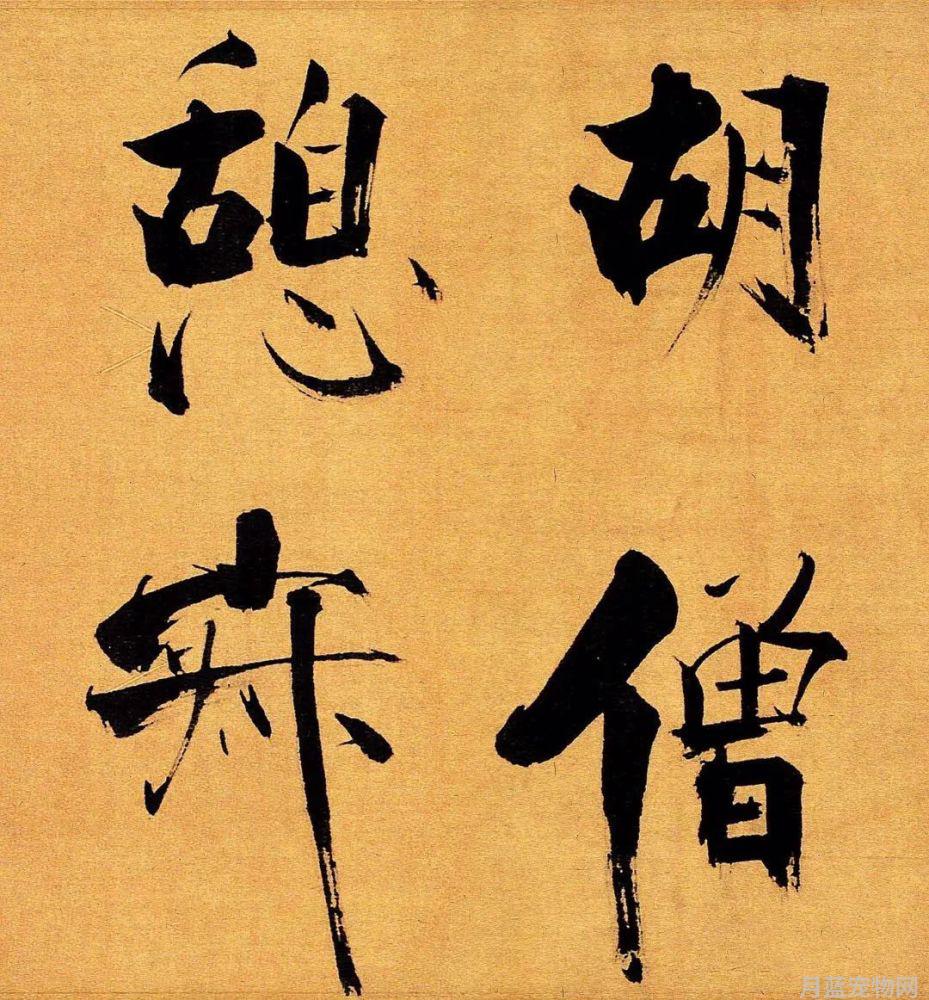 胡僧
憩寂
月蓝宠物网